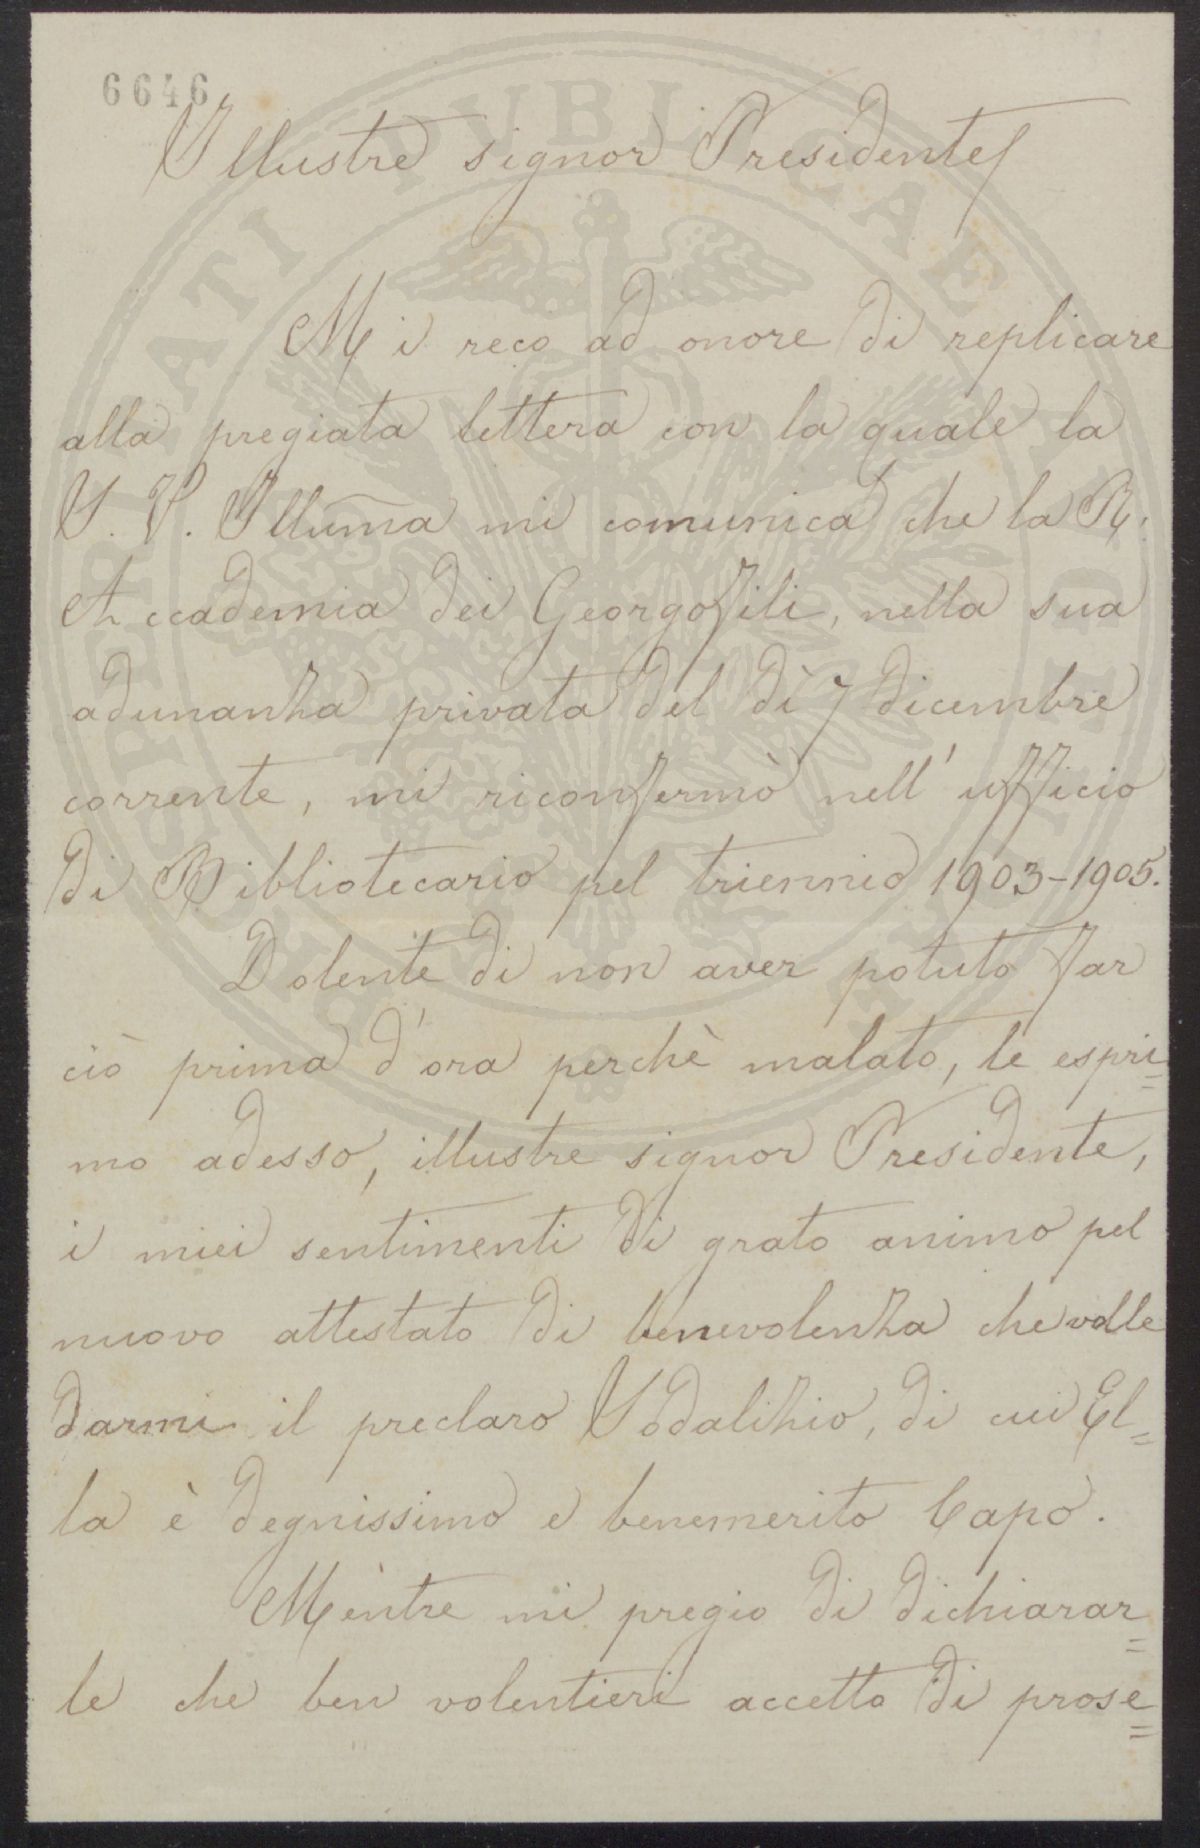 6646
Illustre signor Presidente
Mi reco ad onore di replicare
alla pregiata lettera con la quale la
S. V. Illuma mi comunica che la R.
Accademia dei Georgofili, nella sua
adunanza privata del dì 7 dicembre
corrente, mi riconfermò nell'ufficio
di Bibliotecario pel triennio 1903-1905.
Dolente di non aver potuto far
ciò prima d'ora perchè malato, le espri=
mo adesso, illustre signor Presidente,
i miei sentimenti di grato animo pel
nuovo attestato di benevolenza che volle
darmi il preclaro Sodalizio, di cui El=
la è degnissimo e benemerito Capo.
Mentre mi pregio di dichiarar=
le che ben volentieri accetto di prose=
PROSPERITATI PVBLICAE AVGENDAE